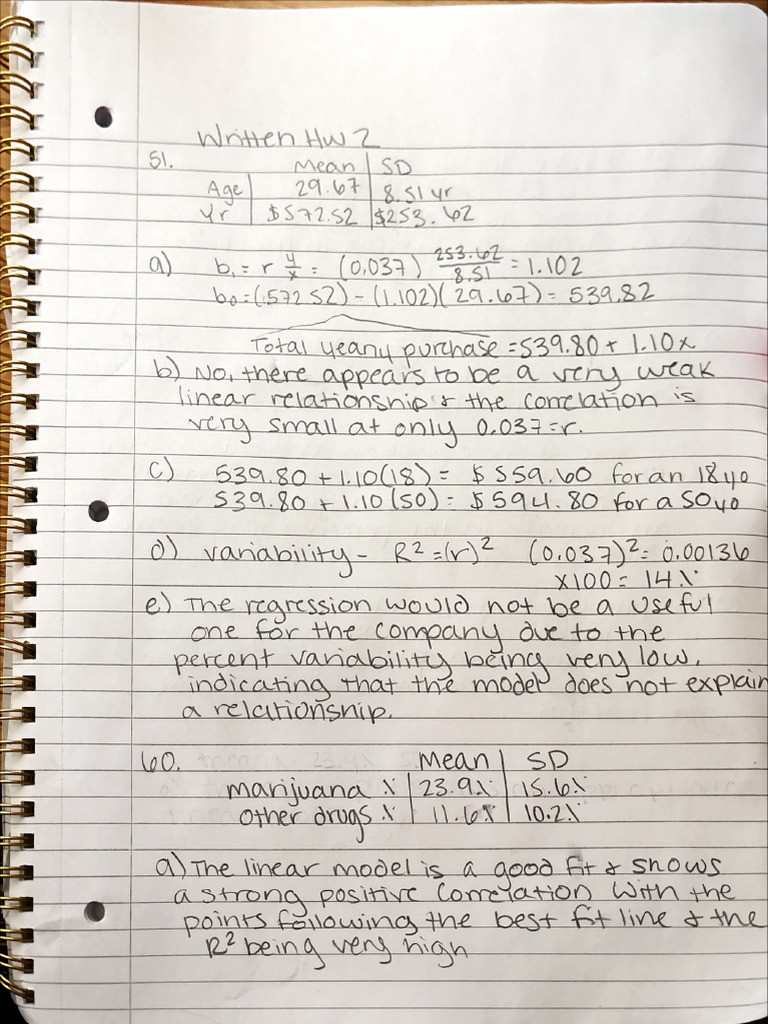 Written HW 2
51.
Mean | SD
Age | 29.67 | 8.51 yr
Yr | $572.52 | $253.62
a) b₁ = r y/x = (0.037) 253.62/8.51 = 1.102
b₀ = (572.52) - (1.102)(29.67) = 539.82
Total yearly purchase = 539.80 + 1.10x
b) No, there appears to be a very weak
linear relationship & the correlation is
very small at only 0.037 = r.
c) 539.80 + 1.10(18) = $559.60 for an 18 yo
539.80 + 1.10(50) = $594.80 for a 50 yo
d) variability - R² = (r)² (0.037)² = 0.00136
x100 = 14%
e) The regression would not be a useful
one for the company due to the
percent variability being very low,
indicating that the model does not explain
a relationship.
60. Mean | SD
marijuana % | 23.9% | 15.6%
other drugs % | 11.6% | 10.2%
a) The linear model is a good fit & shows
a strong positive correlation with the
points following the best fit line & the
R² being very high